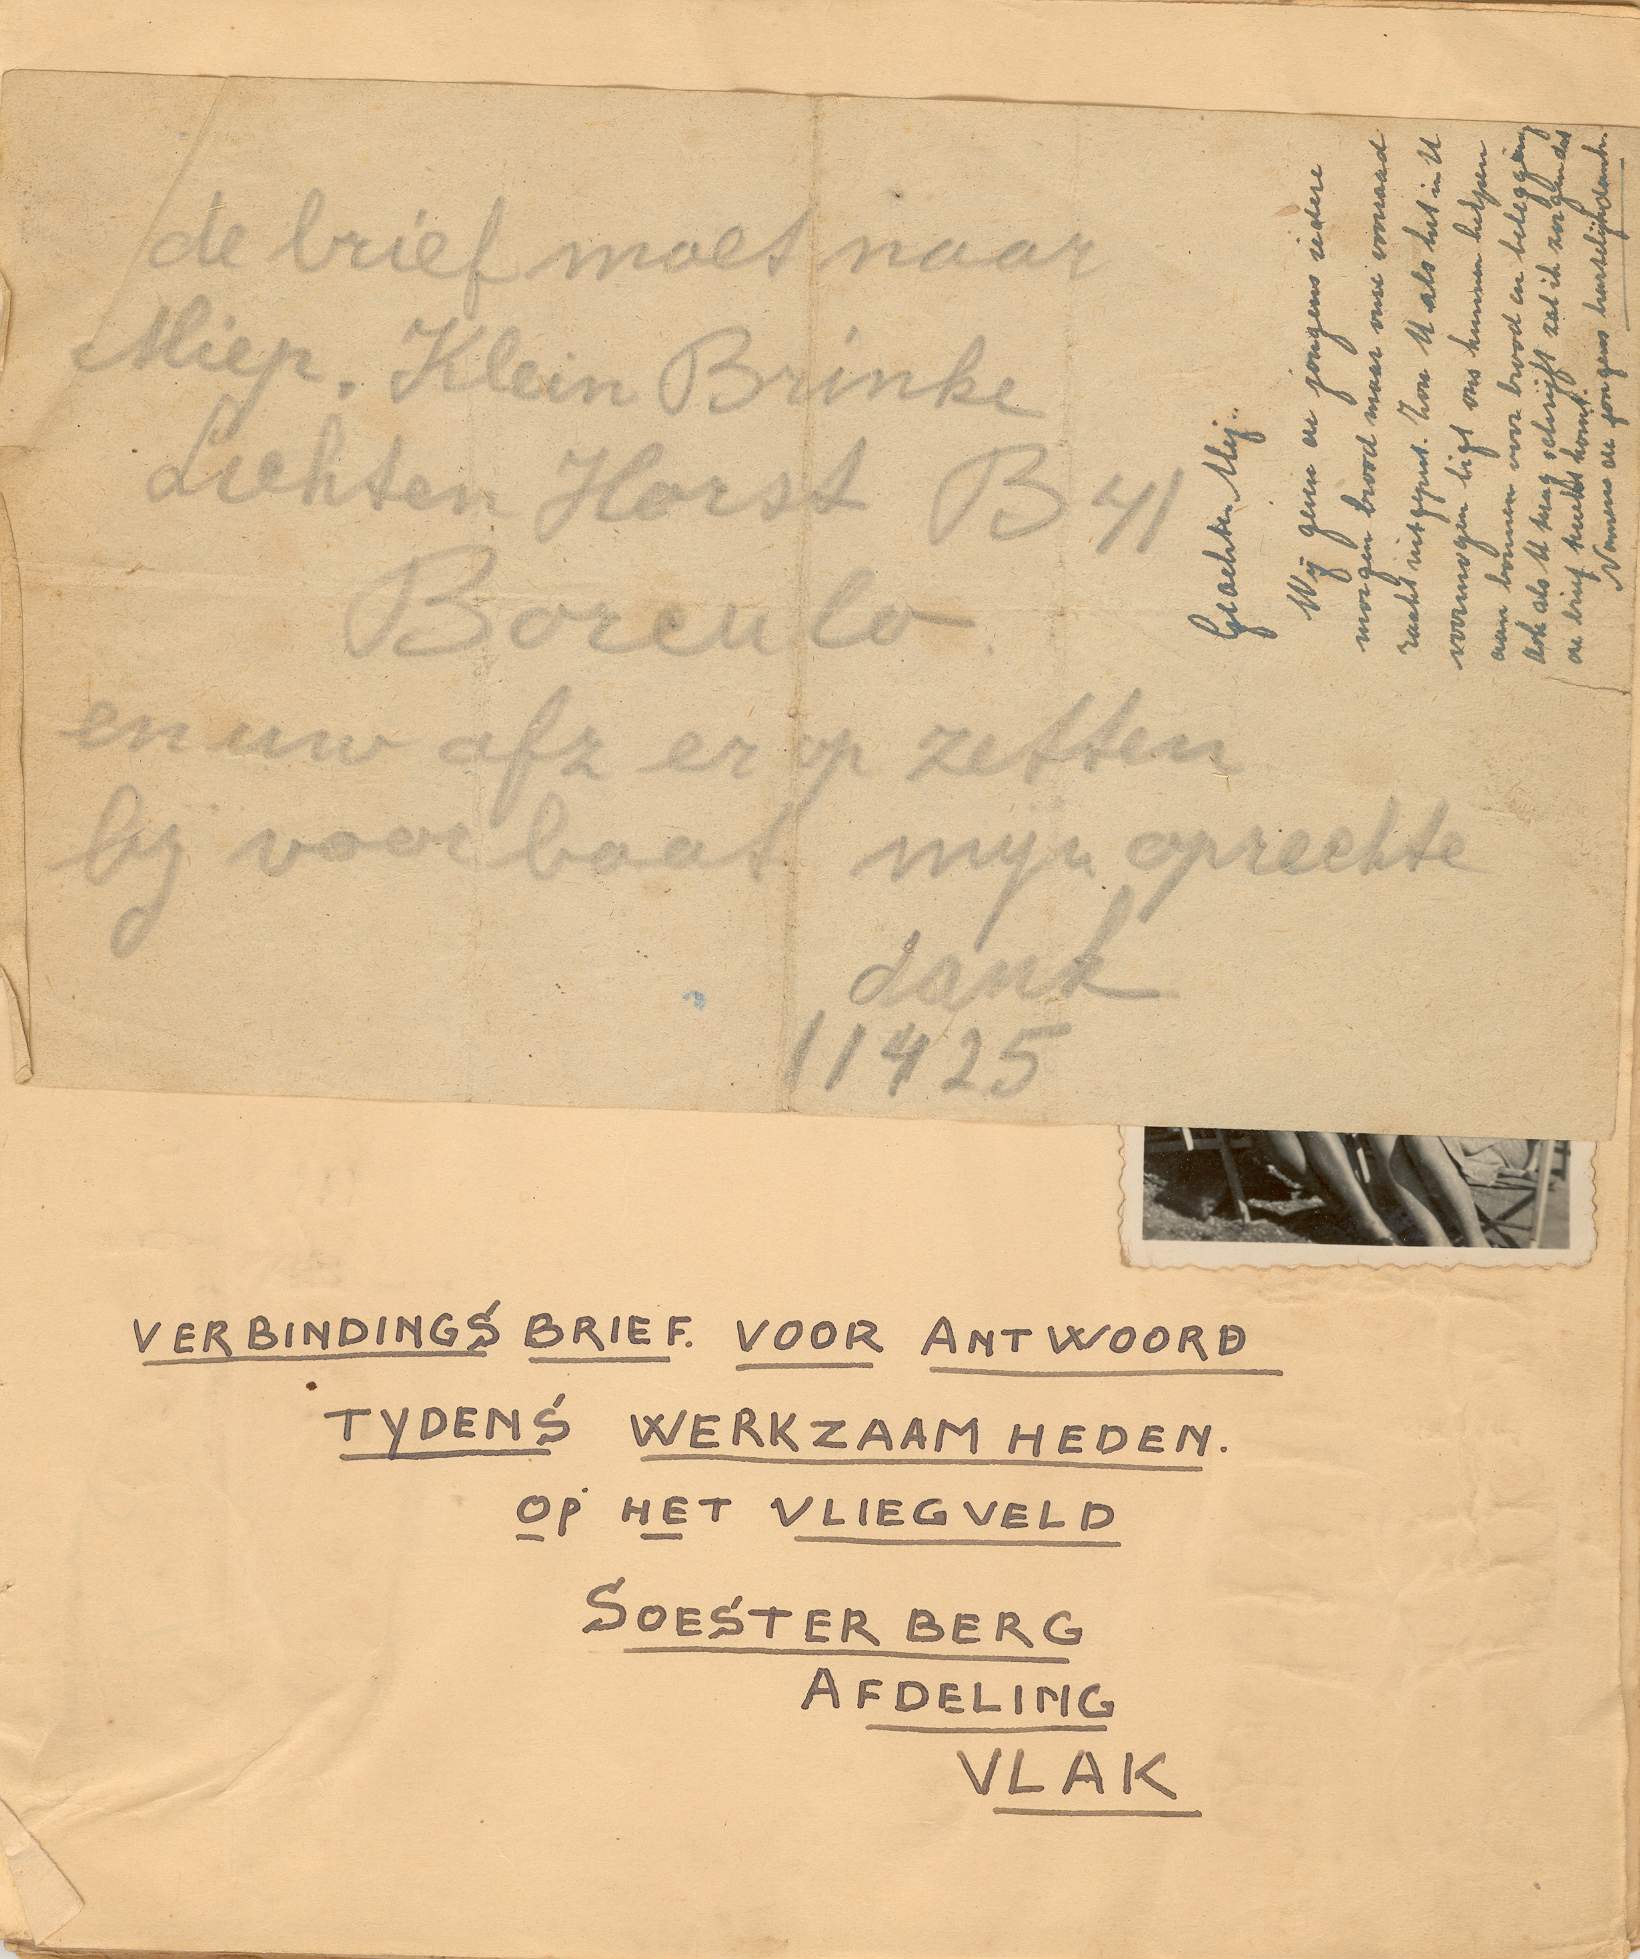 de brief moet naar
Miep. Klein Brinke
Lichten Horst B 41
Borculo
en uw afz er op zetten
bij voorbaat mijn oprechte
dank
11425
Geachten Mej..
Wij geven de jongens iedere
morgen brood maar onze voorraad
raakt uitgeput. Zou U als het in U
voormogen ligt ons kunnen helpen
aan bonnen voor brood en belegging
Ook als U terug schrijft zal ik zorgen dat
de brief terecht komt.
Namens de jongens hartelijk dank.
VERBINDINGS BRIEF. VOOR ANTWOORD
TYDENS WERKZAAMHEDEN.
OP HET VLIEGVELD
SOESTERBERG
AFDELING
VLAK